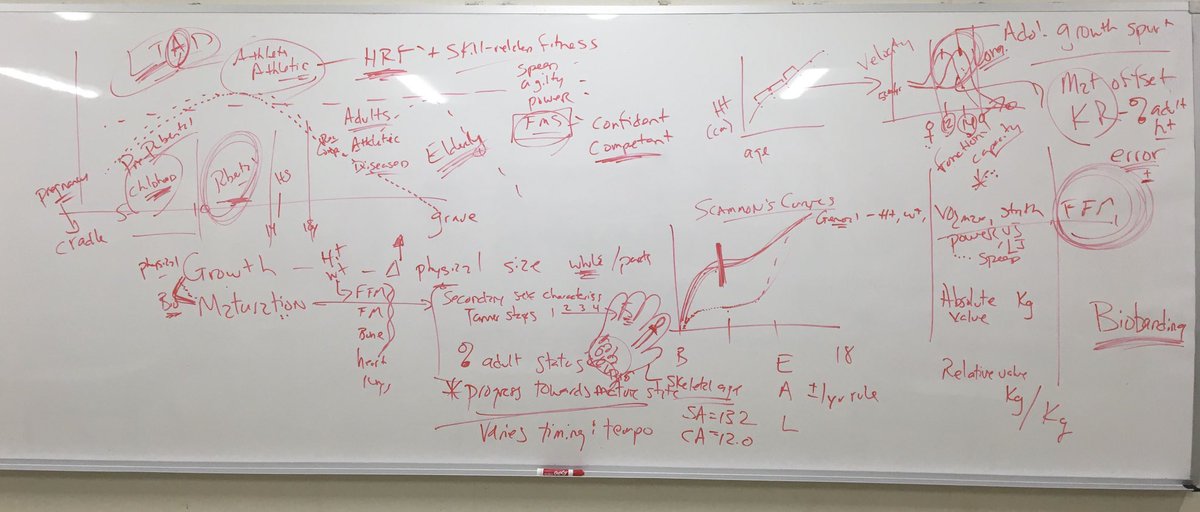 TAD
Athlete
Athletic
HRF + Skill-related fitness
speed
agility
power
FMS
Confident
Competant
Adults
Athletic
Diseased
Elderly
Pre-Pubertal
pregnancy
childhood
Pubertal
HS
cradle
grave
Ht
(cm)
age
Velocity
Adol. growth spurt
Mat offset
KR - % adult
ht
error
±
♀ 12 14 ♂
Function
capacity
*
VO2max, strth
power
speed
FFM
Absolute Kg
value
Relative value
Kg/Kg
Biobanding
Scammon's Curves
General - Ht, wt,
B
18
physical
Growth - Ht
wt - Δ physical size whole/parts
Bio
Maturation
FFM
FM
Bone
heart
lungs
Secondary sex characteris
Tanner stages 1 2 3 4
% adult status
* progress towards mature state
Varies timing & tempo
Skeletal age
SA=13.2
CA=12.0
E
A ±1yr rule
L
EXPO